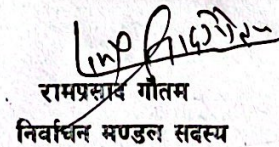 रामप्रसाद गौतम
निर्वाचन मण्डल सदस्य